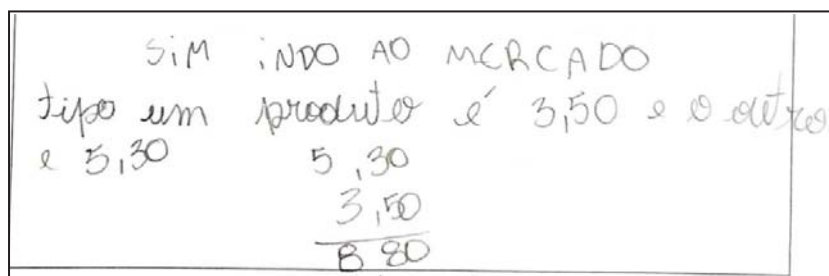 SiM iNDO AO MERCADO
tipo um produto é 3,50 e o outro
e 5,30 5,30
3,50
8 80